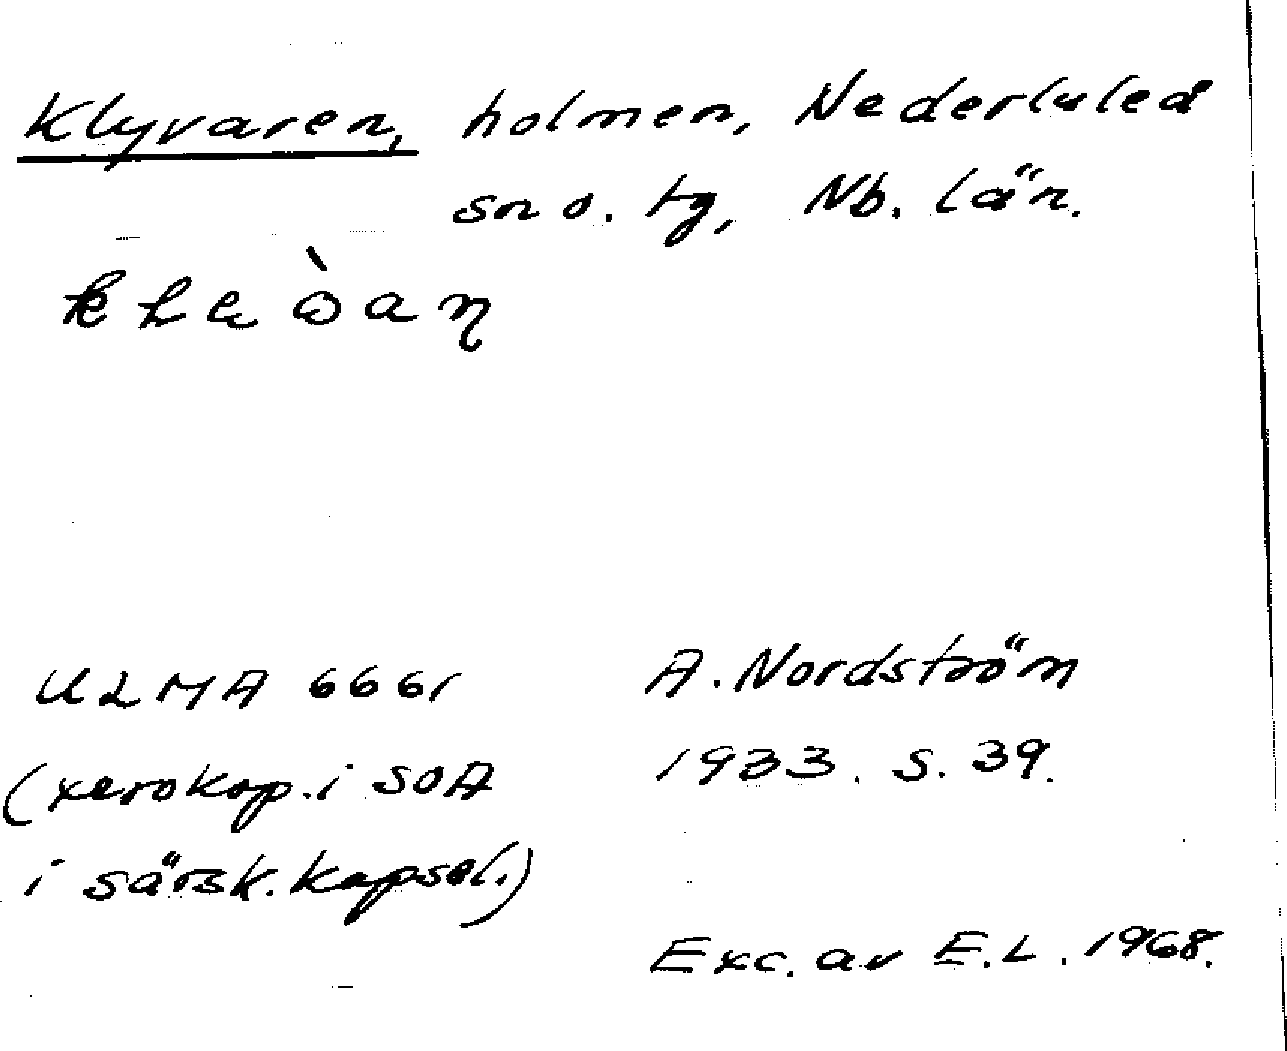 Klyvaren, holmen, Nederluleå
sn o. tg, Nb. län.
ULMA 6661
A. Nordström
(xerokop. i SOA
1933. S. 39.
i särsk. kapsel.)
Exc. av E.L. 1968.